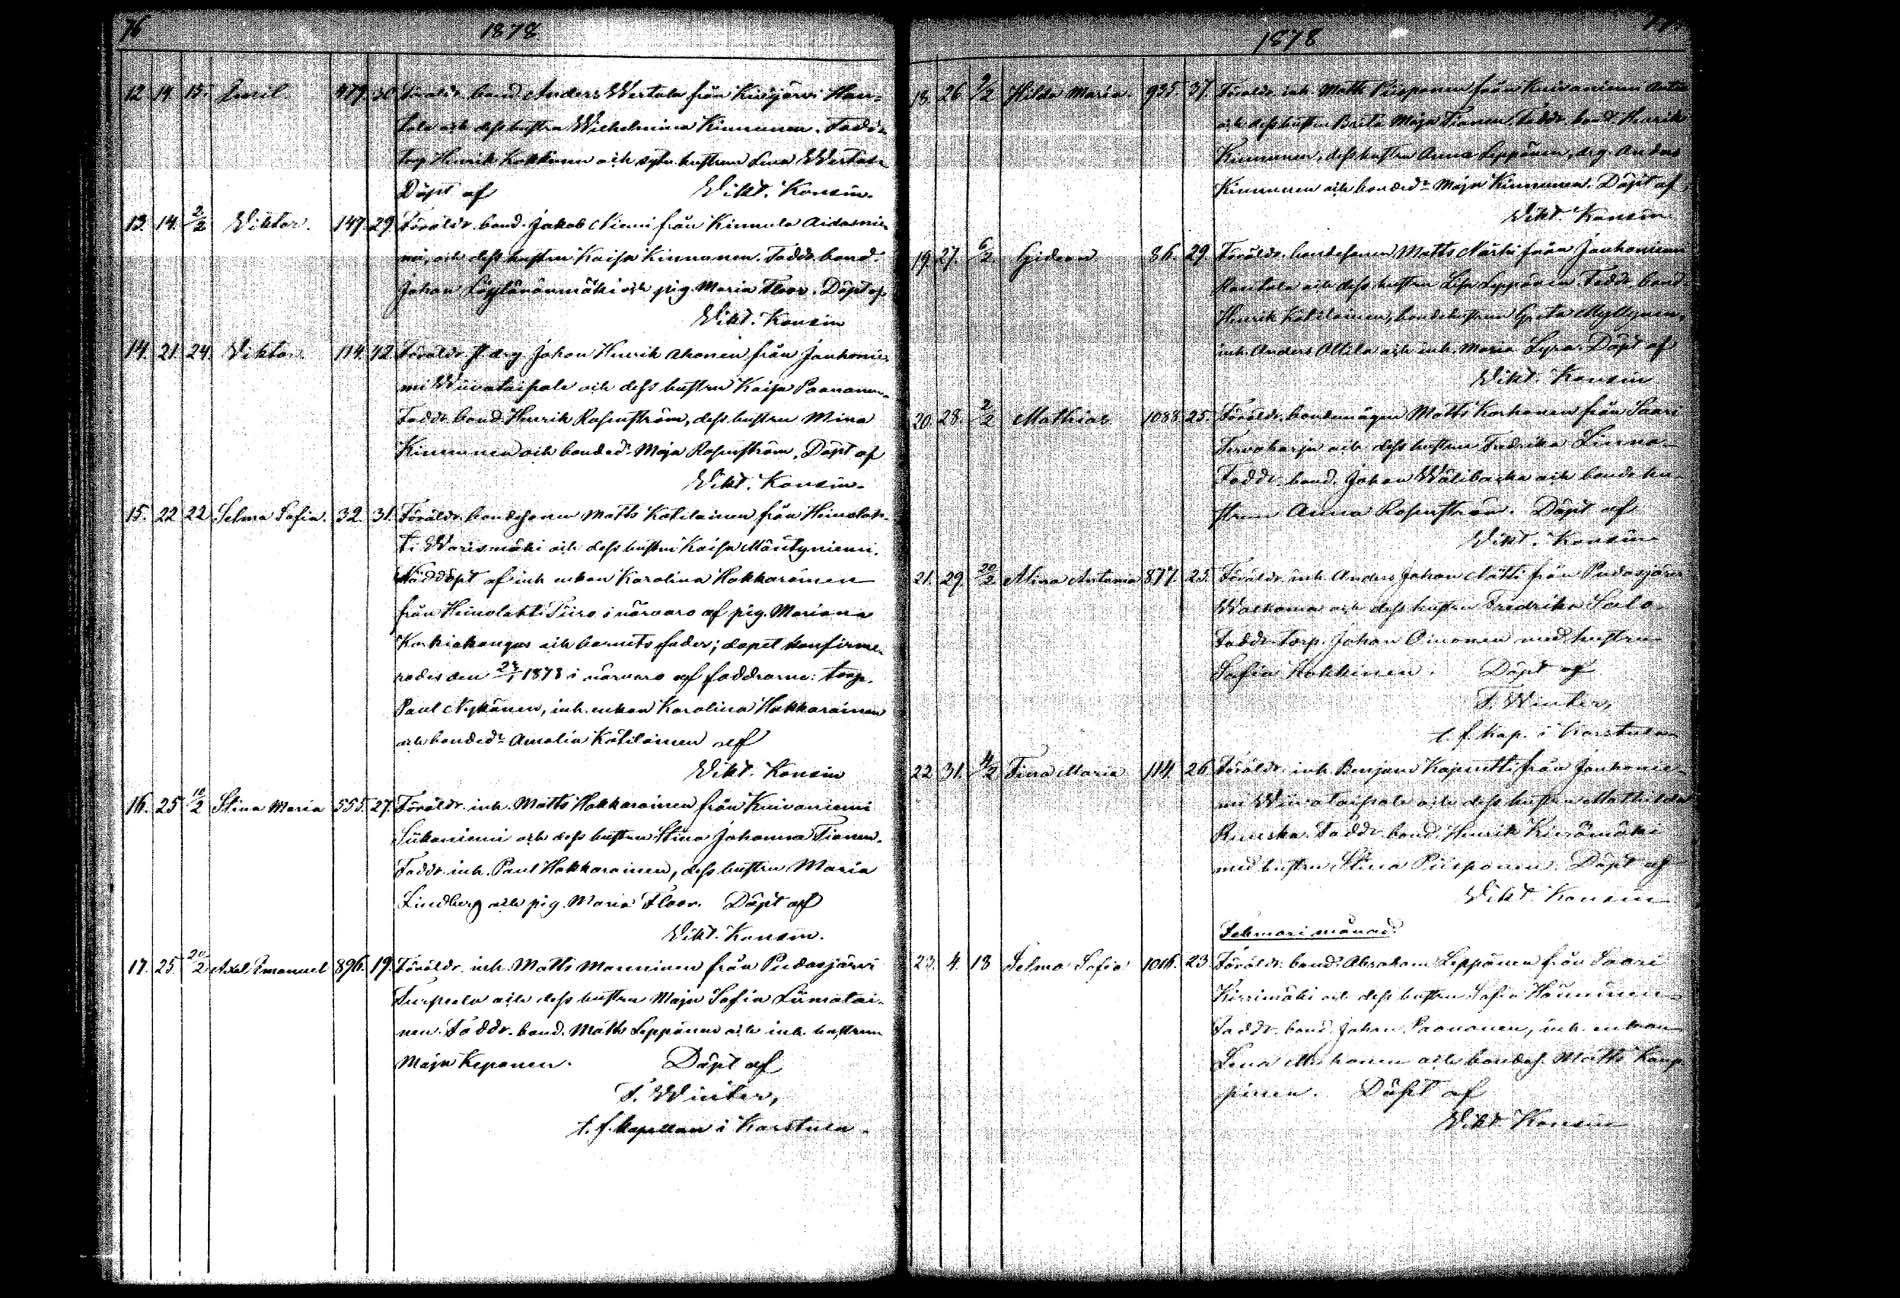 76
1878
12. 14. 15. Emil 479. 30. Föräldr. bond. Anders Wertala från Kivijärvi Han-
tala och dess hustru Wilhelmina Kinnunen. Faddr.
torp. Henrik Kokkonen och sytn. hustrun Lena Wertala
Döpt af Vikt. Konsin.
13. 14. 2/2 Viktor. 147. 29. Föräldr. bond. Jakob Niemi från Kinnula Aidannie-
mi, och dess hustru Kaisa Kinnunen. Faddr. bond.
Johan Löytänänmäki och pig. Maria Floor. Döpt af
Vikt. Konsin
14. 21. 24. Viktor. 114. 42. Föräldr. Johan Henrik Ahonen från Jauhonie-
mi Wiivataipale och dess hustru Kaisa Paananen.
Faddr. bond. Henrik Rosenström, dess hustru Mina
Kinnunen och bonded:r Maja Rosenström. Döpt af
Vikt. Konsin.
15. 22. 22. Selma Sofia. 32. 31. Föräldr. bondesonen Matts Kotilainen från Heinolah-
ti Warismäki och dess hustru Kaisa Mäntyniemi.
Nöddöpt af inh. enkan Karolina Hakkarainen
från Heinolahti Piiro i närvaro af pig. Mariana
Korkiakangas och barnets fader; dopet konfirme-
rades den 28/1 1878 i närvaro af faddrarne: torp.
Paul Nykänen, inh. enkan Karolina Hakkarainen
och bonded:r Amalia Kotilainen af
Vikt. Konsin
16. 25. 10/2 Stina Maria 555. 27. Föräldr. inh. Matts Hakkarainen från Kuivaniemi
Siikaniemi och dess hustru Stina Johanna Tianen.
Faddr. inh. Paul Hakkarainen, dess hustru Maria
Lindberg och pig. Maria Floor. Döpt af
Vikt. Konsin.
17. 25. 20/2 Axel Emanuel 896. 19. Föräldr. inh. Matts Manninen från Pudasjärvi
Turpeela och dess hustru Maja Sofia Liimatai-
nen. Faddr. bond. Matts Leppänen och inh. hustrun
Maja Keponen. Döpt af
F. Winter,
t. f. kapellan i Karstula.
1878
18. 26. 9/2 Hilda Maria. 935. 37. Föräldr. inh. Matts Piisponen från Kuivaniemi
och dess hustru Brita Maja Tianen. Faddr. bond. Henrik
Kinnunen, dess hustru Anna Leppänen, drg. Anders
Kinnunen och bonded:r Maja Kinnunen. Döpt af
Vikt. Konsin
19. 27. 6/2 Gideon 86. 29. Föräldr. bondesonen Matts Närhi från Jauhoniemi
Rantala och dess hustru Lisa Leppänen. Faddr. bond.
Henrik Kotilainen, bondehustrun Greta Myllynen,
inh. Anders Attila och inh. Maria Lyra. Döpt af
Vikt. Konsin
20. 28. 2/2 Mathias. 1088. 25. Föräldr. bondemågen Matts Korhonen från Saari
Tervaharju och dess hustru Fredrika Linna.
Faddr. bond. Johan Wälibacka och bondehu-
strun Anna Rosenström. Döpt af
Vikt. Konsin
21. 29. 20/2 Alina Antonia 877. 25. Föräldr. inh. Anders Johan Mätti från Pudasjärvi
Walkama och dess hustru Fredrika Salo.
Faddr. torp. Johan Oinonen med hustru
Sofia Kokkinen. Döpt af
F. Winter,
t. f. kap. i Karstula
22. 31. 4/2 Tiina Maria 114. 26. Föräldr. inh. Benjam. Kapretti från Jauhonie-
mi Wiivataipale och dess hustru Mathilda
Faddr. bond. Henrik Kivimäki
med hustru Stina Piisponen. Döpt af
Vikt. Konsin
Februari månad.
23. 4. 18 Selma Sofia 1016. 23. Föräldr. bond. Abraham Leppänen från Saari
Kirrimäki och dess hustru Sofia Hänninen.
Faddr. bond. Johan Paananen, inh. enkan
Lena och bondes. Matts Kaup-
pinen. Döpt af
Vikt. Konsin